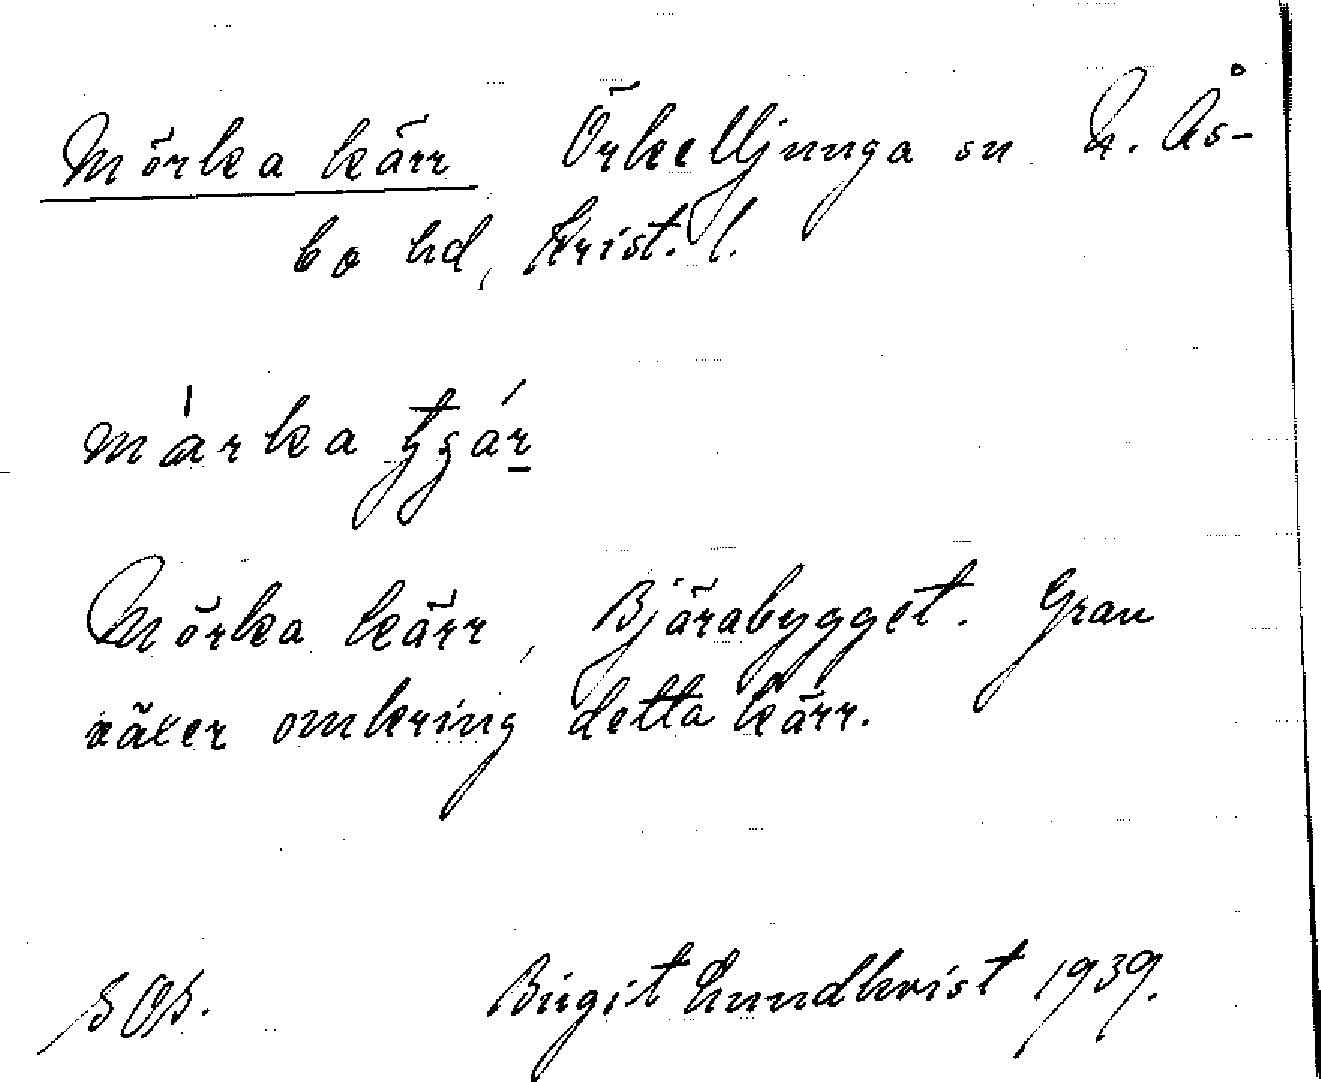 Mörka kärr Örkelljunga sn N. Ås-
bo hd, Krist. l.
Mörka kärr, Bjärabygget. Gran
växer omkring detta kärr.
Birgit Lundkvist 1939.